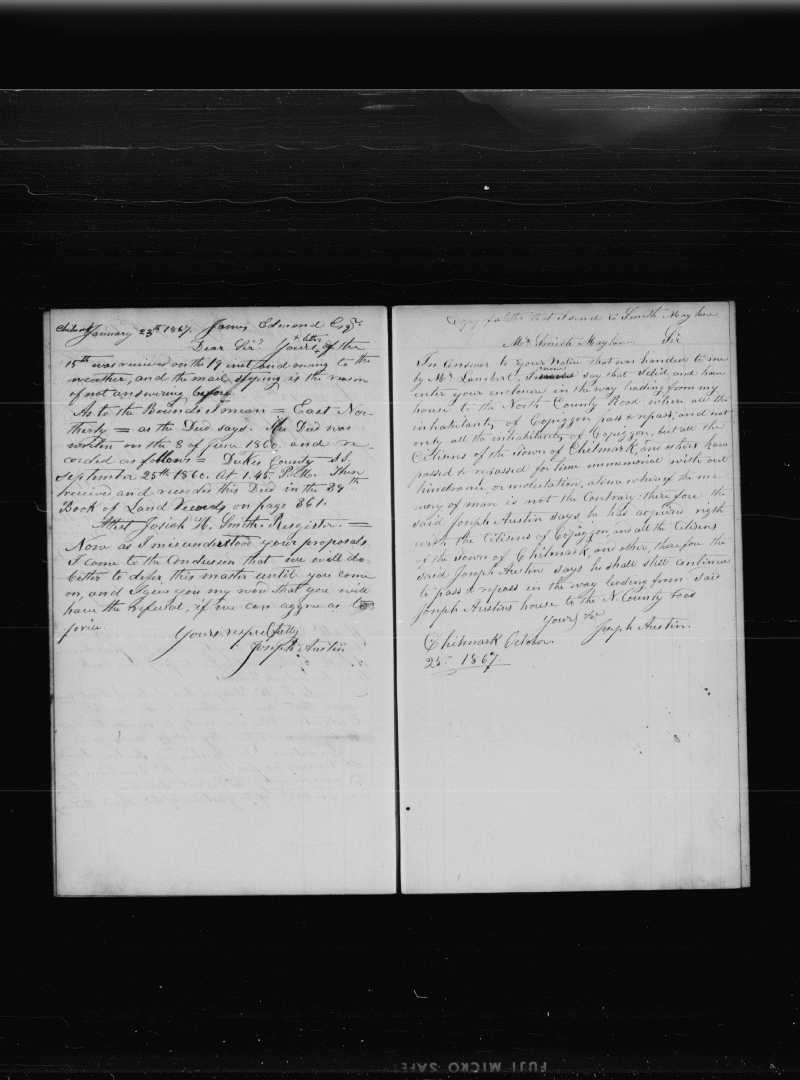 Chilmark January 23th 1867. James Edmond Esqr.
Dear Sir? Yours letter of the
15th was received on the 19 inst, and owing to the
weather, and the mail stoping is the reason
of not answering before
As to the Bounds I mean = East Nor-
therly = as the Died says. The Died was
written on the 8 of June 1860. and re-
corded as follows = Dukes County SS.
September 25th 1860. At 1.45. P. M. Then
received, and recorded this Died in the 38th
Book of Land Records on page 361.
Attest Josiah H. Smith. Resgister. =
Now as I misunderstood your proposals
I come to the Conclusion that we will do
better to defer this matter until you come
on, and I give you my word that you will
have the refusal, if we can aggree as to
price.
Yours respectfully
Joseph Austin
Copy of a letter that I send to Smith Mayhew
Mr Smith Mayhew. Sir
In Answer to Your Notice that was handed to me
by Mr Lambert, I now say that I did and have
enter your enclosure in the way leading from my
house to the North County Road where all the
inhabitants of Copizzon pass & repass, and not
only all the inhabitants of Copizzon, but all the
Citizens of the Town of Chilmark, and others have
passed & repassed for time immemorial with out
hindrance or molestation, also whereof the me
mory of man is not the Contrary; therefore the
said Joseph Austin says he has acquired rigth
with the Citizens of Copizzon, and all the Citizens
of the Town of Chilmark, and other, therefore the
said Joseph Austin says he shall still continue
to pass & repass in the way leading from said
Joseph Austins house to the N. County road
Yours &c
Chilmark October. Joseph Austin.
25- 1867.
FUJI MICRO SAFET